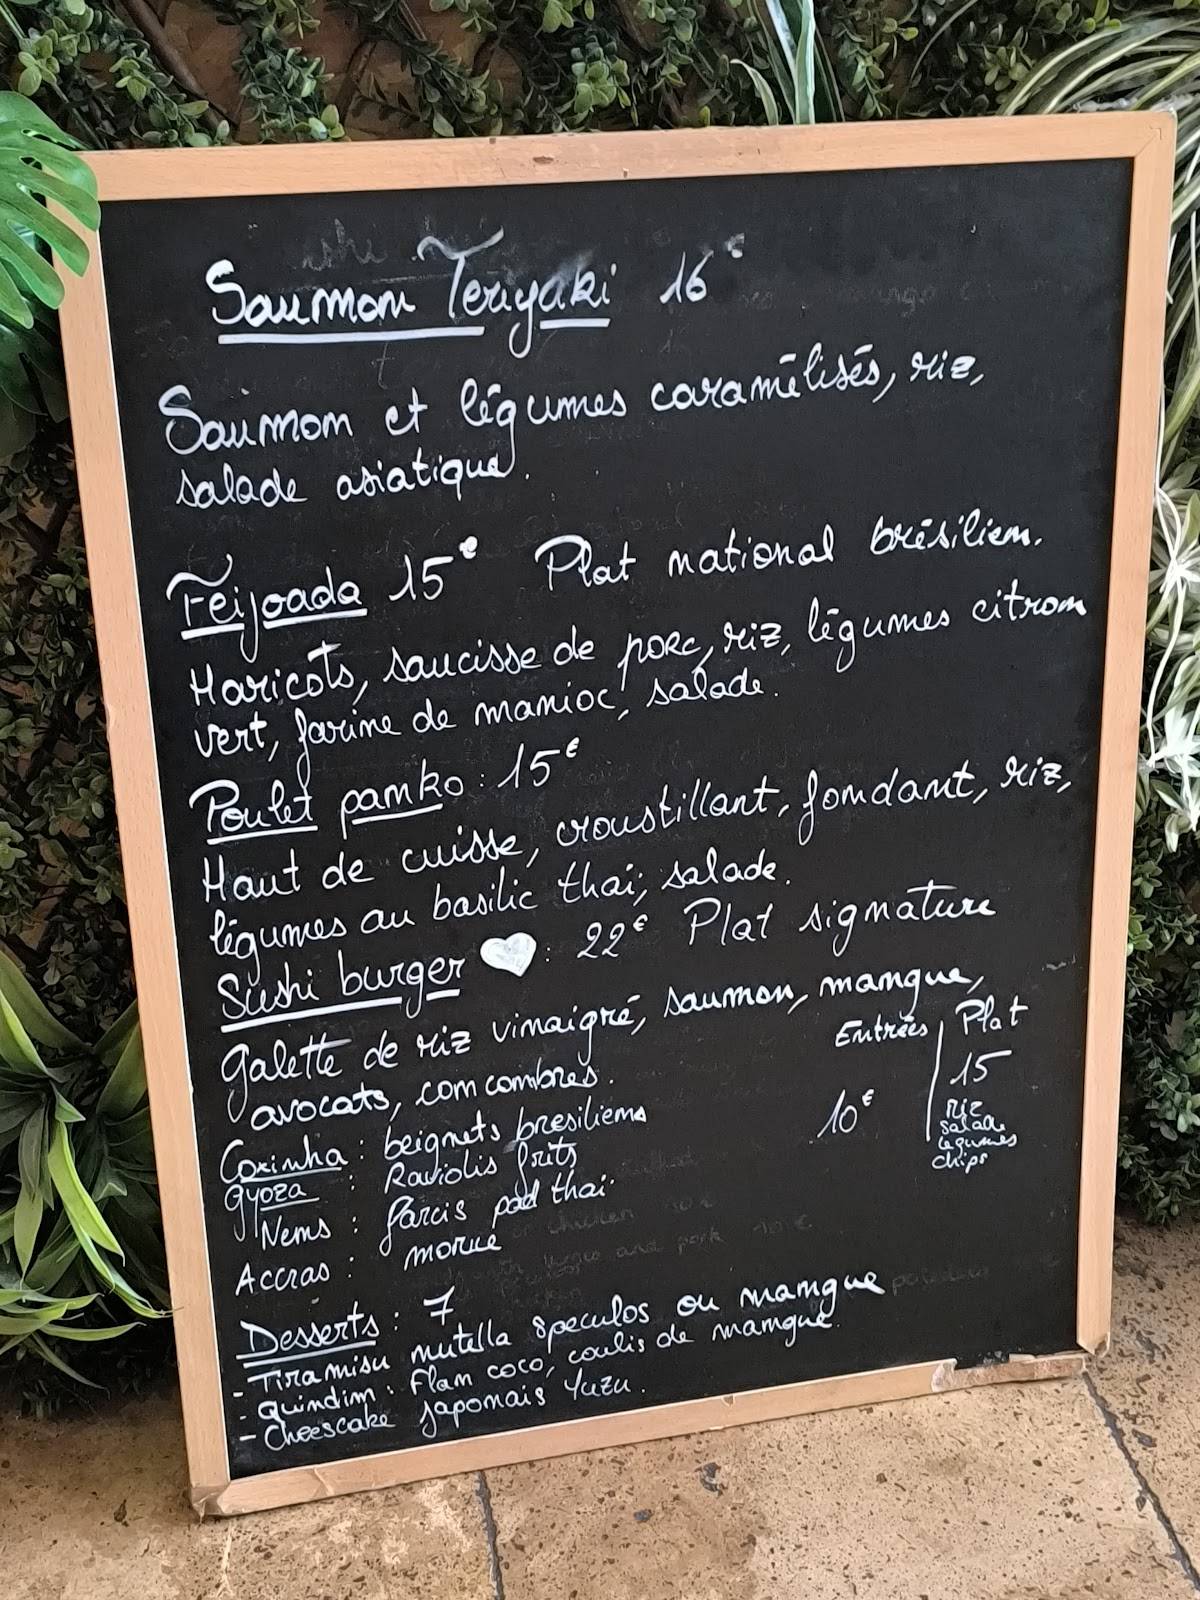 Saumon Teriyaki 16€
Saumon et légumes caramélisés, riz,
salade asiatique.
Feijoada 15€ Plat national brésilien.
Haricots, saucisse de porc, riz, légumes citron
vert, farine de manioc, salade.
Poulet panko : 15€
Haut de cuisse, croustillant, fondant, riz,
légumes au basilic thai, salade.
Sushi burger : 22€ Plat signature
Galette de riz vinaigré, saumon, mangue,
avocats, concombres.
Entrées Plat
10€ 15
riz
salade
légumes
chips
Coxinha : beignets bresiliens
Gyoza : Raviolis frits
Nems : farcis pad thai
Accras : morue
Desserts : 7
- Tiramisu nutella speculos ou mangue
- Quindim : Flan coco, coulis de mangue.
- Cheescake japonais Yuzu.